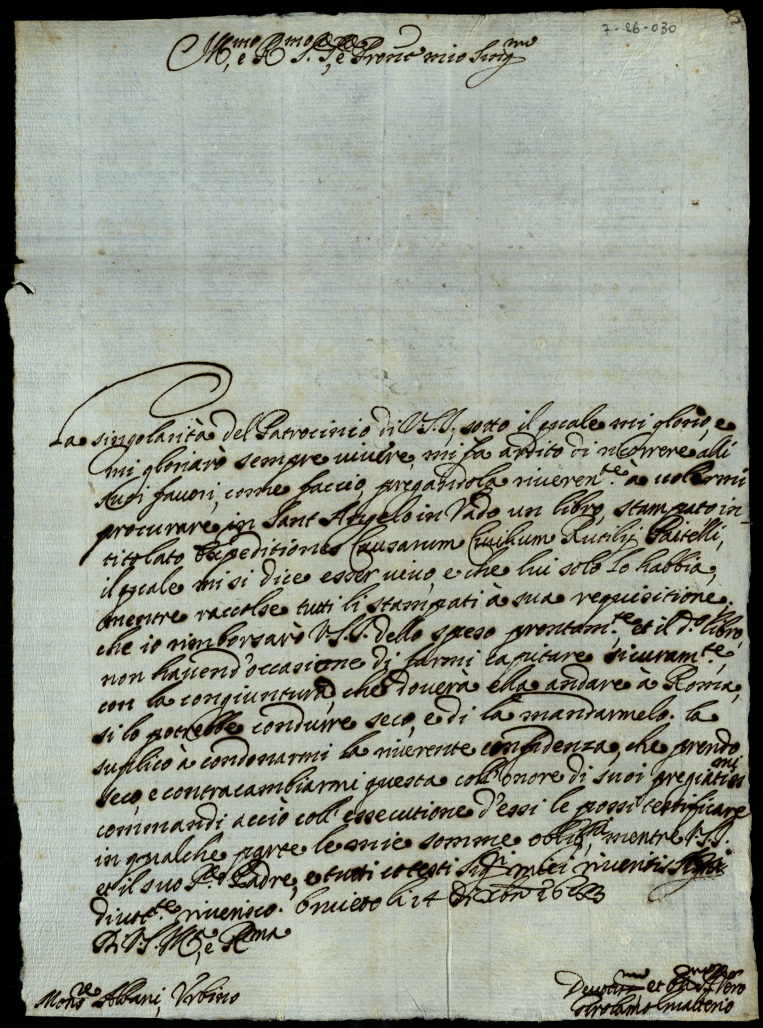 7-26-030
Ill.mo e R.mo S.r S.r, e Pron'e mio Sing.mo
La singolarità del Patrocinio di V.S.I. sotto il quale mi glorio, e
mi gloriarò sempre vivere, mi fa ardito di ricorrere alli
suoi favori, come faccio, pregandola riveren.te à volermi
procurare in Sant'Angelo in Vado un libro, stampato in-
titolato Expeditiones Causarum Civilium Rutilij
il quale mi si dice esser vivo, e che lui solo lo habbia,
mentre raccolse tutti li stampati à sua requisitione.
che io rimborsarò V.S.I. dello speso prontam.te, et il d.o libro,
non havend'occasione di farmi capitare sicuram.te,
con la congiuntura, che doverà ella andare à Roma,
si lo potrebbe condurre seco, e di là mandarmelo. la
suplico à condonarmi la riverente confidenza, che prendo
seco, e contracambiarmi questa coll'onore di suoi pregiatis.mi
commandi acciò coll'essecutione d'essi le possi testificare
in qualche parte le mie somme oblig.ni, mentre V.S.I.
et il suo S.r Padre, e tutti cotesti Sig.ri miei riveriti
divot.te riverisco. li 14 Di Xbre
Di V.S. Ill.ma e R.ma
Mons.re Albani, Urbino
Devotiss.mo et Ser.re Vero
Girolamo